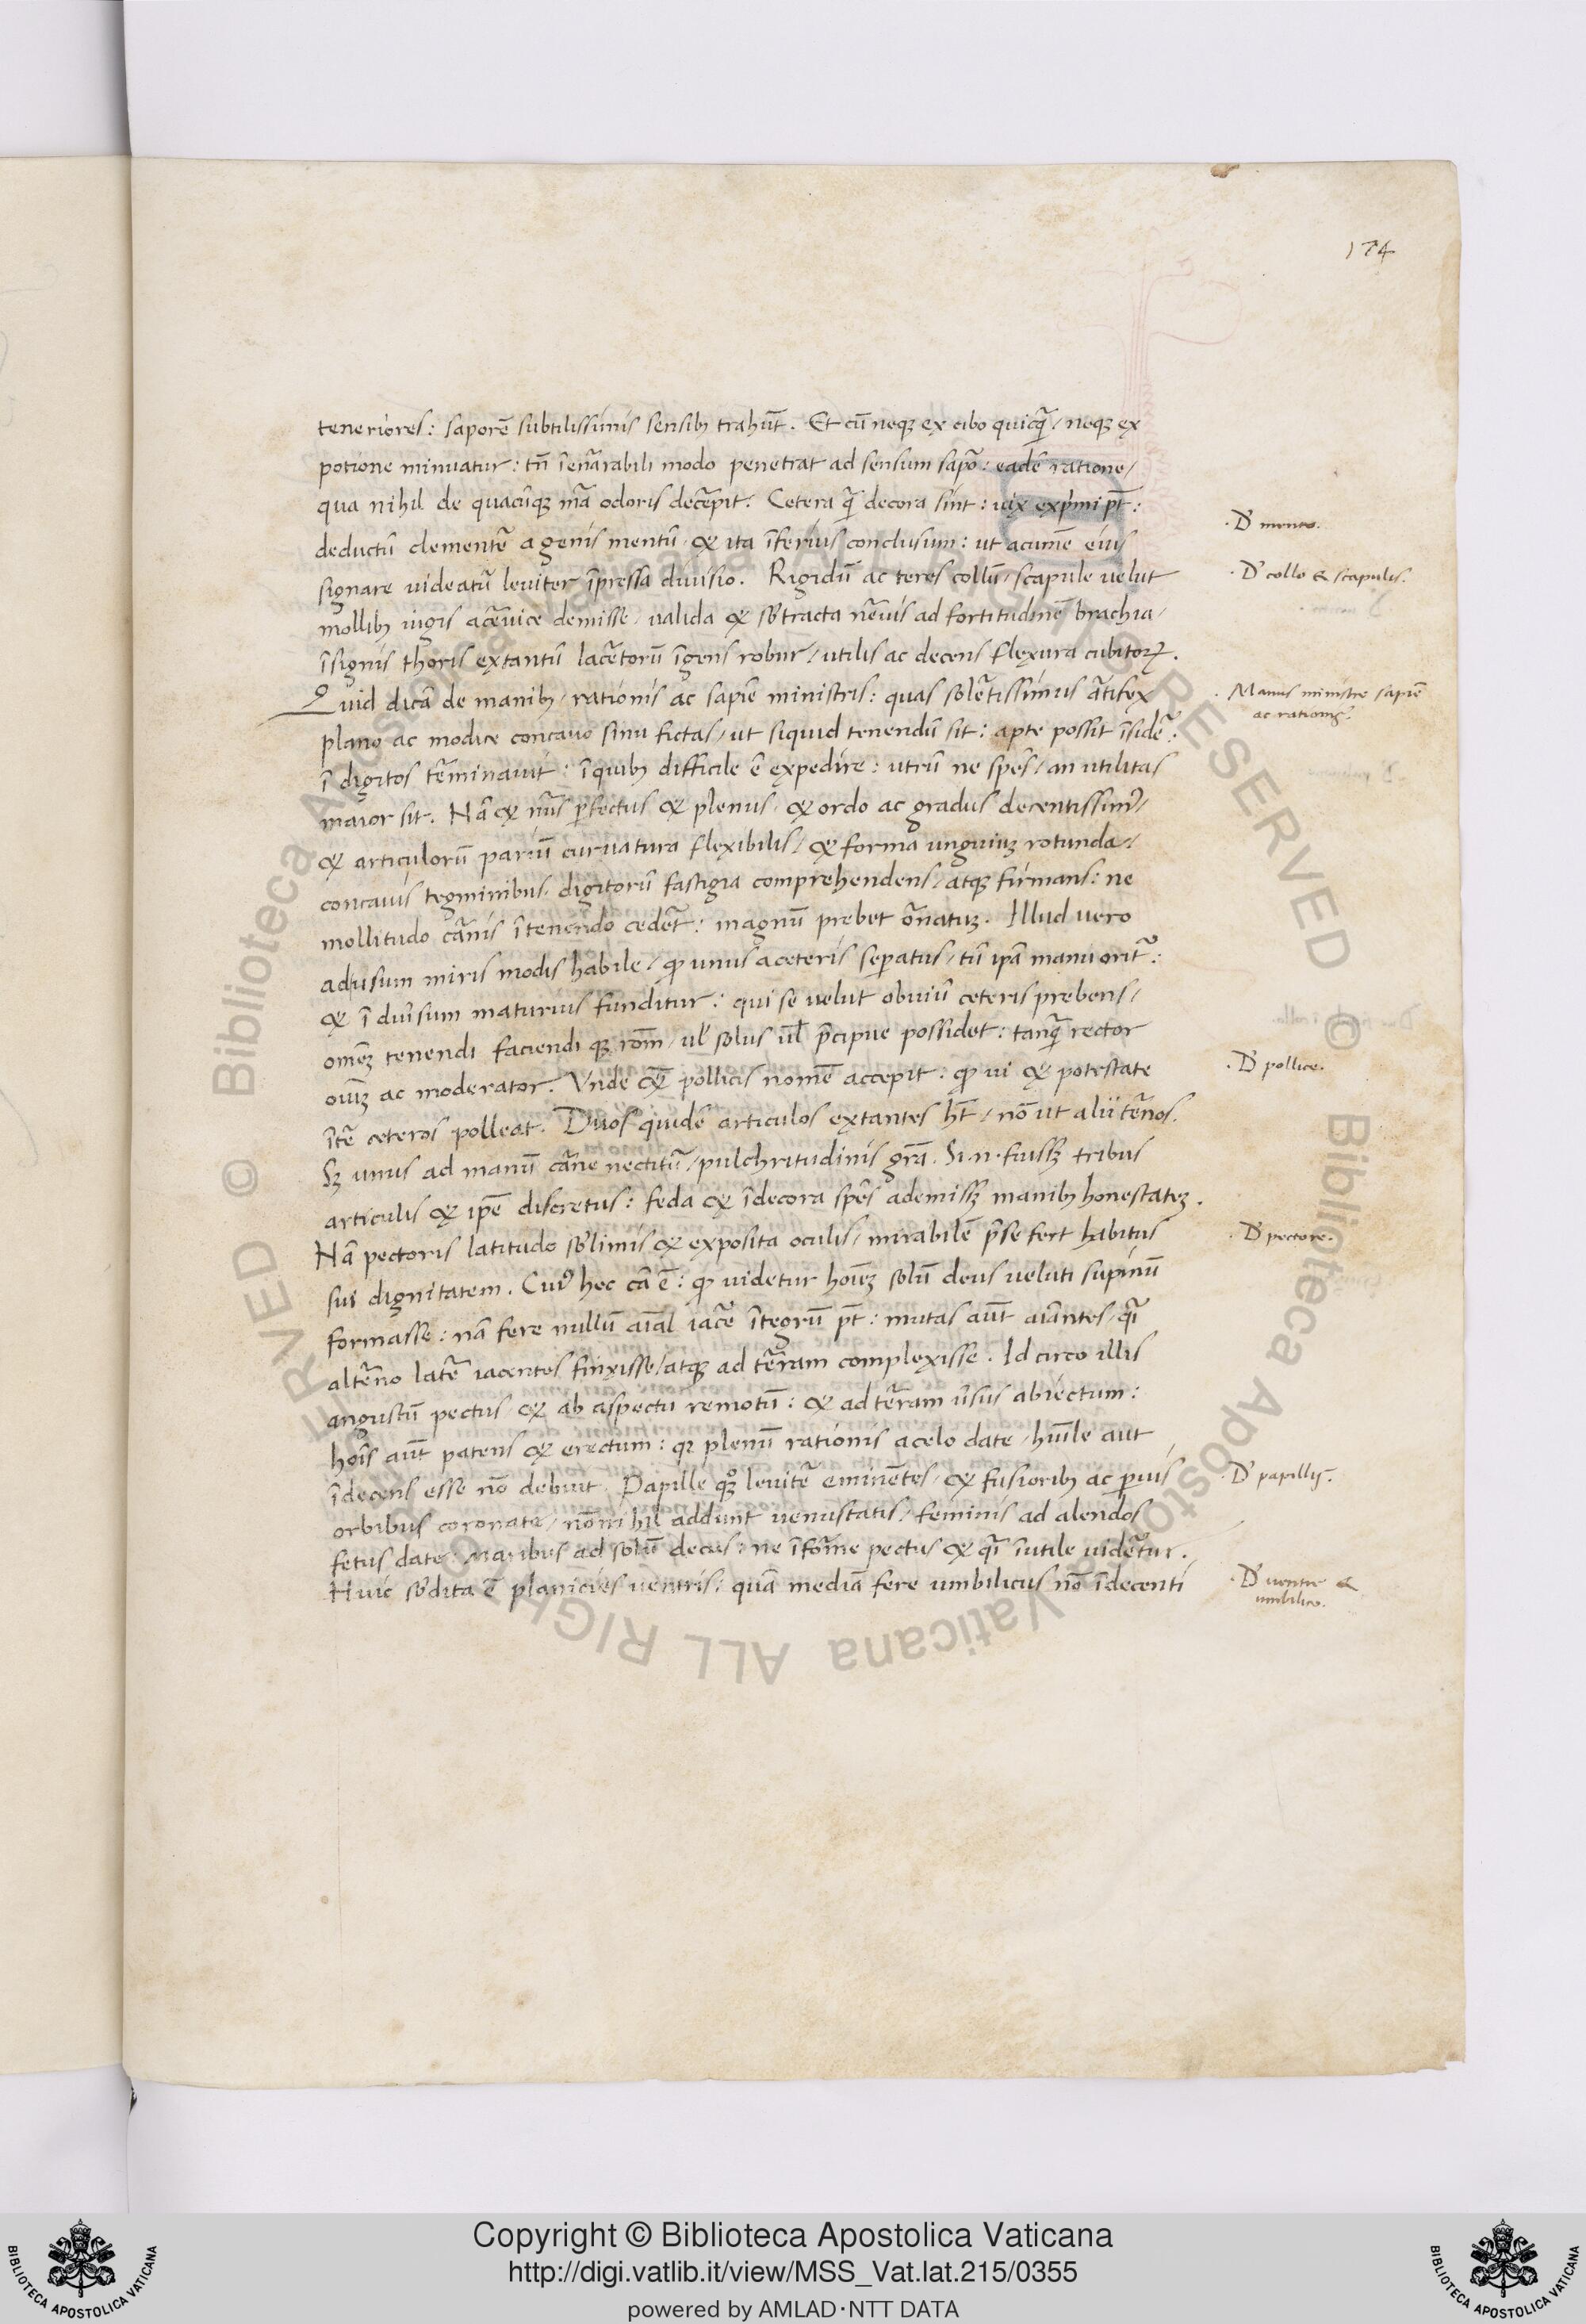 174
teneriores: saporē subtilissimis sensibꝫ trahūt. Et cū neqꝫ ex cibo quicq̄ / neqꝫ ex
potione minuatur: tn̄ īenarabili modo penetrat ad sensum sapor: eadē ratione /
qua nihil de quacūqꝫ mā odoris decerpit. Cetera q̄ decora sint: uix exprimi pt̄:
deductū clementer a genis mentū / & ita īferius conclusum: ut acumē eius
signare videatur leuiter īpressa diuisio. Rigidū ac teres collū / scapule velut
mollibꝫ iugis a cervice demisse / valida & sbtracta neruis ad fortitudinē brachia /
īsignis thoris extantiū lacertorū īgens robur / utilis ac decens flexura cubitoꝝ.
Quid dicā de manibꝫ / rationis ac sapiē ministris: quas solertissimus artifex
plano ac modice concavo sinu fictas / ut siquid tenendū sit: apte possit īsidere:
ī digitos terminauit: ī quibꝫ difficile ē expedire: utrū ne spēs / an utilitas
maior sit. Nā & nūs perfectus & plenus / & ordo ac gradus decentissimꝰ /
& articulorū pariū curuatura flexibilis / & forma unguiuꝫ rotunda /
concauis tegminibus / digitorū fastigia comprehendens / atqꝫ firmans: ne
mollitudo carnis ī tenendo cederet: magnū prebet ornatuꝫ. Illud vero
ad usum miris modis habile / qꝫ unus a ceteris separatus / cū ipā manu oritur:
& ī diuersum maturius funditur: qui se velut obuiū ceteris prebens /
omneꝫ tenendi faciendi qꝫ rōm / ul̄ solus ul̄ p̄cipue possidet: tanq̄ rector
oīuꝫ ac moderator. Unde etiā pollicis nomē accepit: qꝫ ui & potestate
īter ceteros polleat. Duos quidē articulos extantes ht̄ / nō ut alii ternos.
Sꝫ unus ad manū carne nectitur / pulchritudinis grā. Si .n. fuissꝫ tribus
articulis & ipē discretus: feda & īdecora spēs ademissꝫ manibꝫ honestateꝫ.
Nā pectoris latitudo sblimis & exposita oculis / mirabilē p̄ se fert habitus
sui dignitatem. Cuiꝰ hec cā ē: qꝫ videtur hoīeꝫ solū deus veluti supinū
formasse: nā fere nullū aīal iacere ī tergū pt̄: mutas aūt aīantes / q̄
alterno latere iacentes finxisse / atqꝫ ad terram complexisse. Id circo illis
angustū pectus / & ab aspectu remotū: & ad terram ūsus abiectum:
hoīs aūt patens & erectum: qꝛ plenū rationis a celo date / hūile aut
īdecens esse nō debuit. Papille qꝫ leuiter eminētes / & fusioribꝫ ac paruis
orbibus coronate / nō nihil addunt venustatis / feminis ad alendos
fetus date / maribus ad solū decus: ne īforme pectus & q̄ īutile uideretur.
Huic sbdita ē planicies ventris: quā mediā fere umbilicus nō īdecenti
· D' mento.
· D' collo & scapulis.
· Manus ministre sapiē
ac rationis.
· D' pollice.
· D' pectore.
· D' papillis.
· D' uentre &
umbilico.
© Biblioteca Apostolica Vaticana ALL RIGHTS RESERVED © Biblioteca Apostolica Vaticana ALL RIGHTS RESERVED
Copyright © Biblioteca Apostolica Vaticana
http://digi.vatlib.it/view/MSS_Vat.lat.215/0355
powered by AMLAD·NTT DATA
BIBLIOTECA APOSTOLICA VATICANA
BIBLIOTECA APOSTOLICA VATICANA